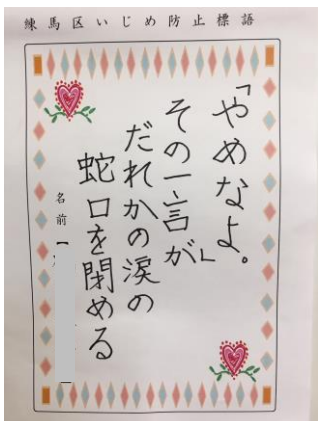 練馬区いじめ防止標語
「やめなよ。」
その一言が
だれかの涙の
蛇口を閉める
名前【